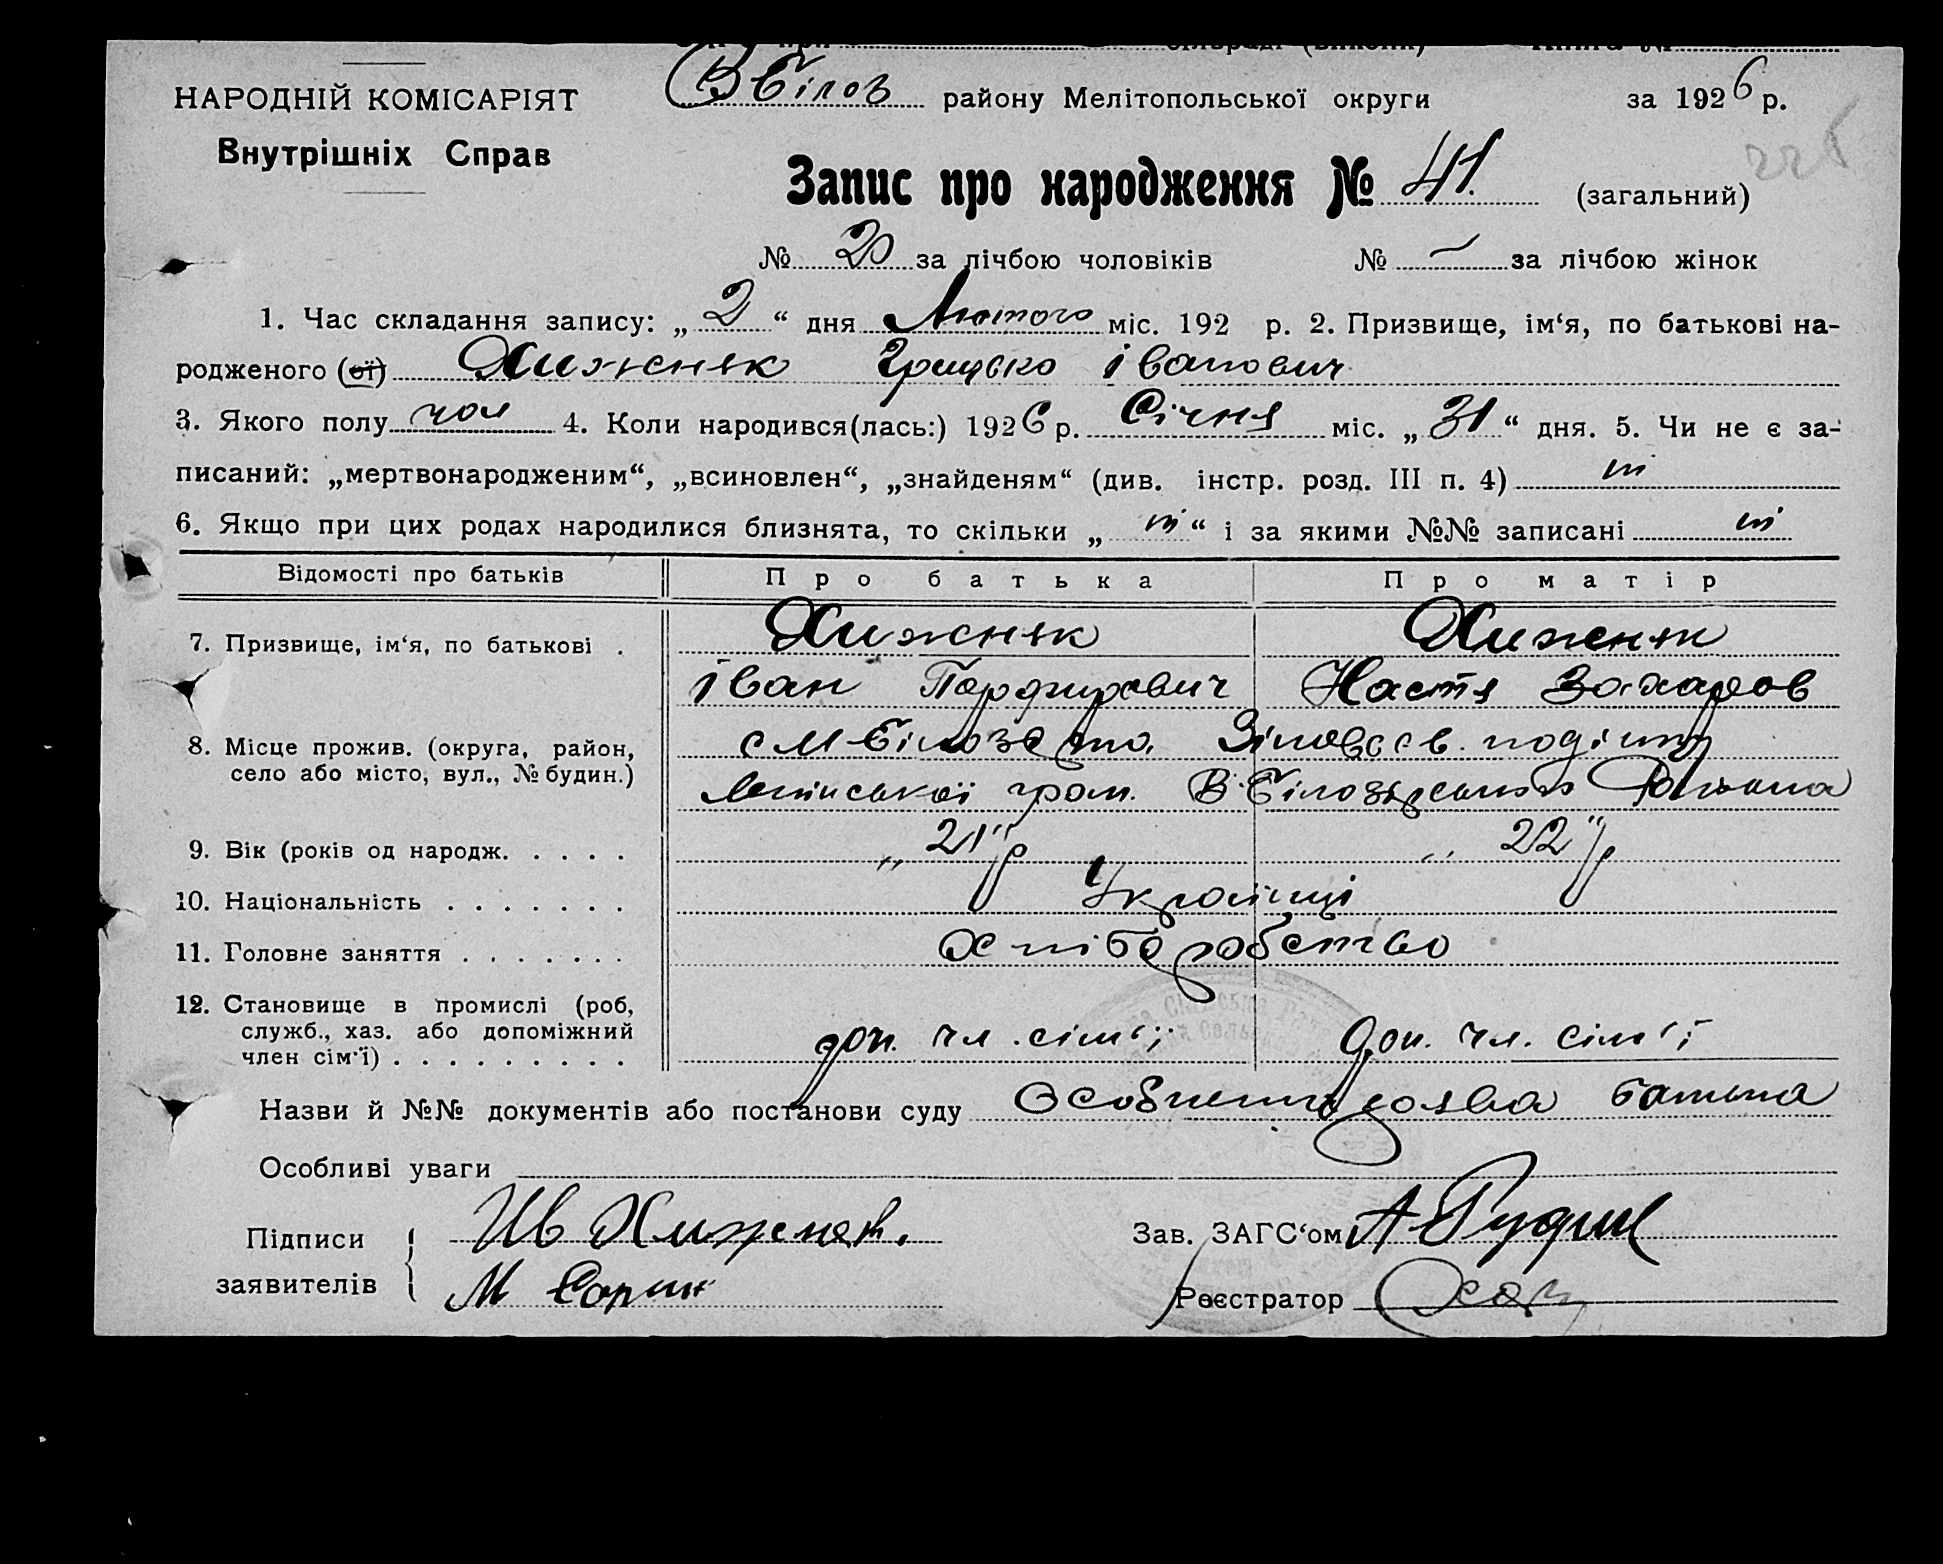 НАРОДНІЙ КОМІСАРІЯТ
Внутрішніх Справ
В Білоз району Мелітопольської округи за 1926 р.
Запис про народження № 41. (загальний)
№ 20 за лічбою чоловіків № — за лічбою жінок
1. Час складання запису: „ 2 “ дня Лютого міс. 192 р. 2. Призвище, ім‘я, по батькові на-
родженого (ої) Хижняк Грицько Іванович
3. Якого полу чол 4. Коли народився(лась:) 1926 р. Січня міс. „ 31 “ дня. 5. Чи не є за-
писаний: „мертвонародженим“, „всиновлен“, „знайденям“ (див. інстр. розд. III п. 4) ні
6. Якщо при цих родах народилися близнята, то скільки „ ні “ і за якими №№ записані ні
Відомості про батьків Про батька Про матір
7. Призвище, ім‘я, по батькові . Хижняк Хижняк
Іван Порфирович Настя Захаров
8. Місце прожив. (округа, район, село або місто, вул., № будин.)
В-Білозірського
9. Вік (років од народж. . . . . „ 21 “ р „ 22 “ р
10. Національність . . . . . . . Українці
11. Головне заняття . . . . . . . Хліборобство
12. Становище в промислі (роб, служб., хаз. або допоміжний член сім‘ї) . . . . . . . . . доп. чл. сім‘ї доп. чл. сім‘ї
Назви й №№ документів або постанови суду заява батька
Особливі уваги
Підписи заявителів Ив Хижняк.
М
Зав. ЗАГС‘ом А
Реєстратор